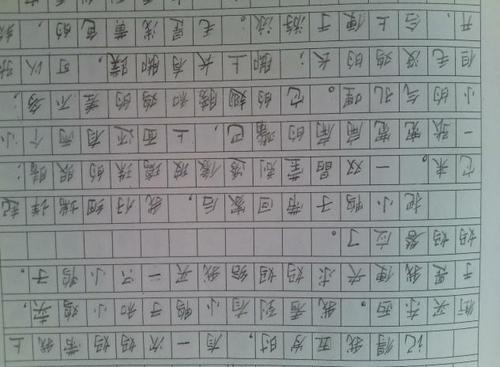 记得我五岁时，有一次妈妈带我上
街买东西，我看到有小鸭子和小鸡卖，
于是我便央求妈妈给我买一只小鸭子。
妈妈答应了。
把小鸭子带回家后，我仔细端详起
它来。一双晶莹剔透像玻璃珠的眼睛；
一张宽宽扁扁的嘴巴，上面还有两个小
小的气孔呢。它的翅膀和鸡的差不多；
但毛没鸡的长；脚上长有脚蹼，可以张
开，合上便于游泳。毛是浅黄色的，